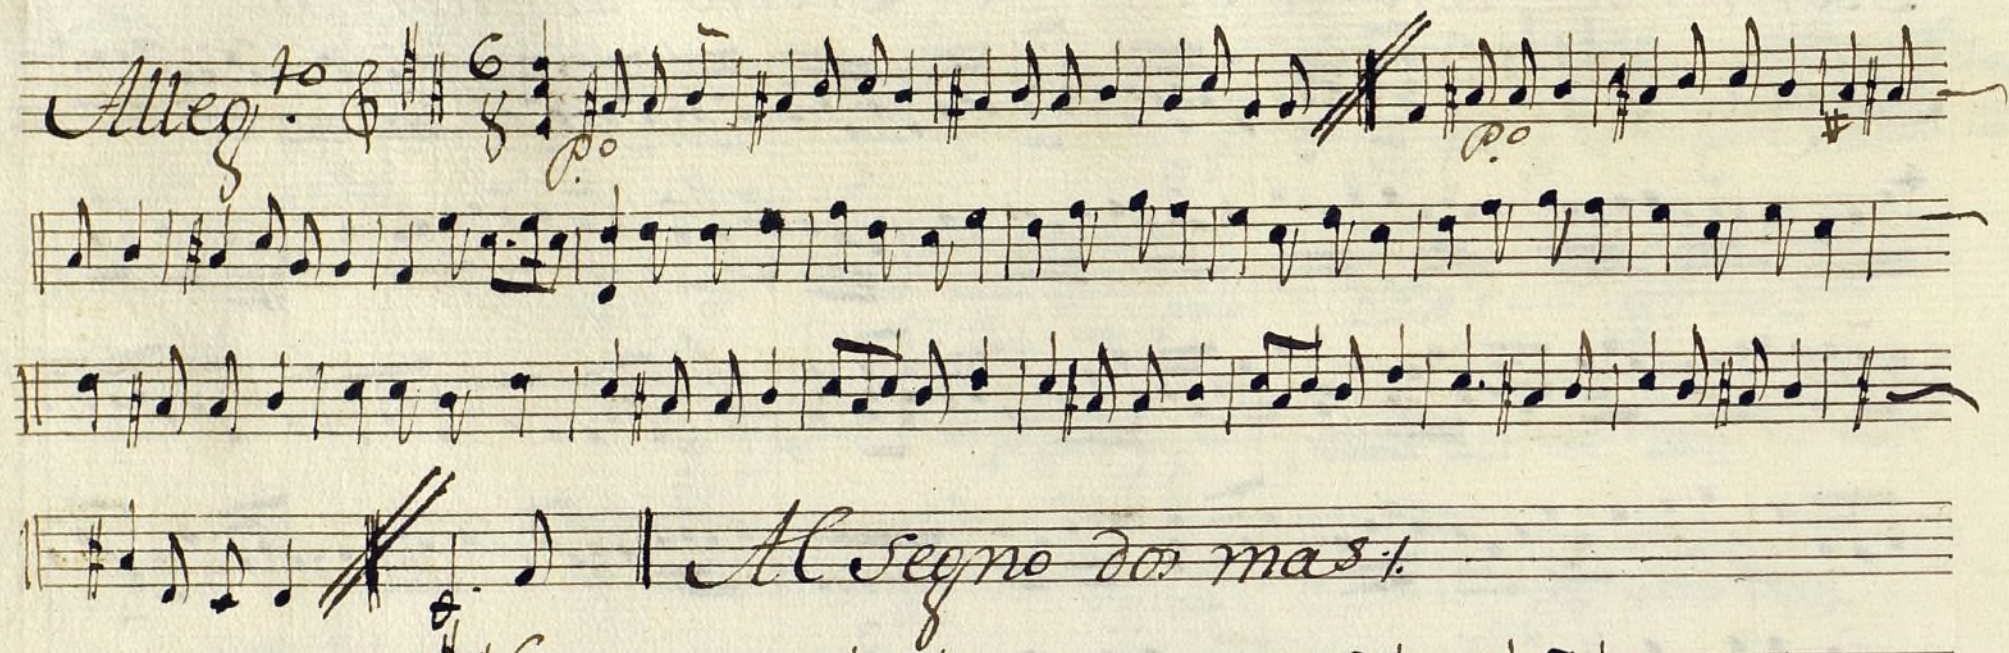 Alleg.to 6 8
po
p.o
Al segno dos mas./.